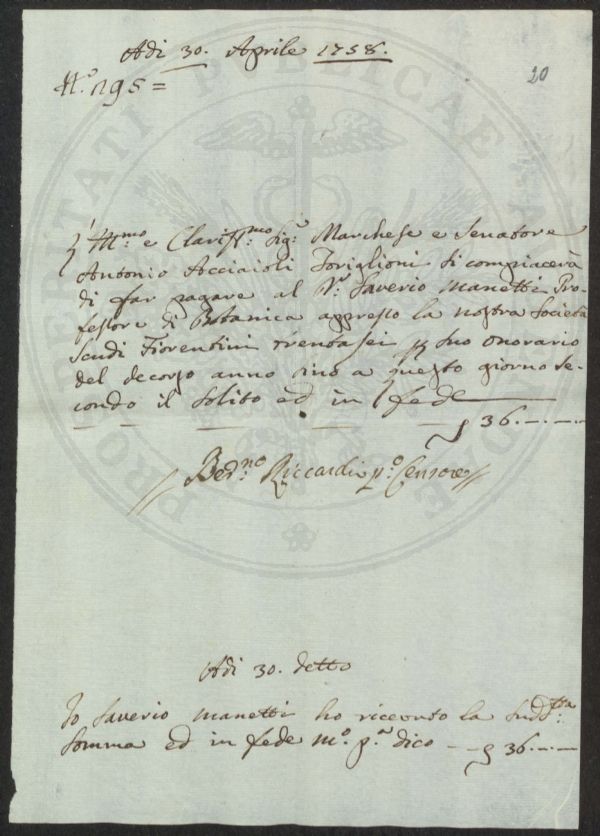 Adi 30. Aprile 1758.
20
N.º 195 =
L'Ill.mo e Clariss.mo Sig.r Marchese e Senatore
Antonio Acciaioli Toriglioni si compiacerà
di far pagare al D.r Saverio Manetti Pro-
fessore di Botanica appresso la nostra Società
Scudi Fiorentini trentasei p suo onorario
del decorso anno sino a questo giorno se-
condo il solito ed in fede
36.
Bern.no Riccardi p.º Censore
Adi 30. detto
Io Saverio Manetti ho ricevuto la Sudd.tta
Somma ed in fede M.º p.a dico 36.
PROSPERITATI PUBLICAE AUGENDAE